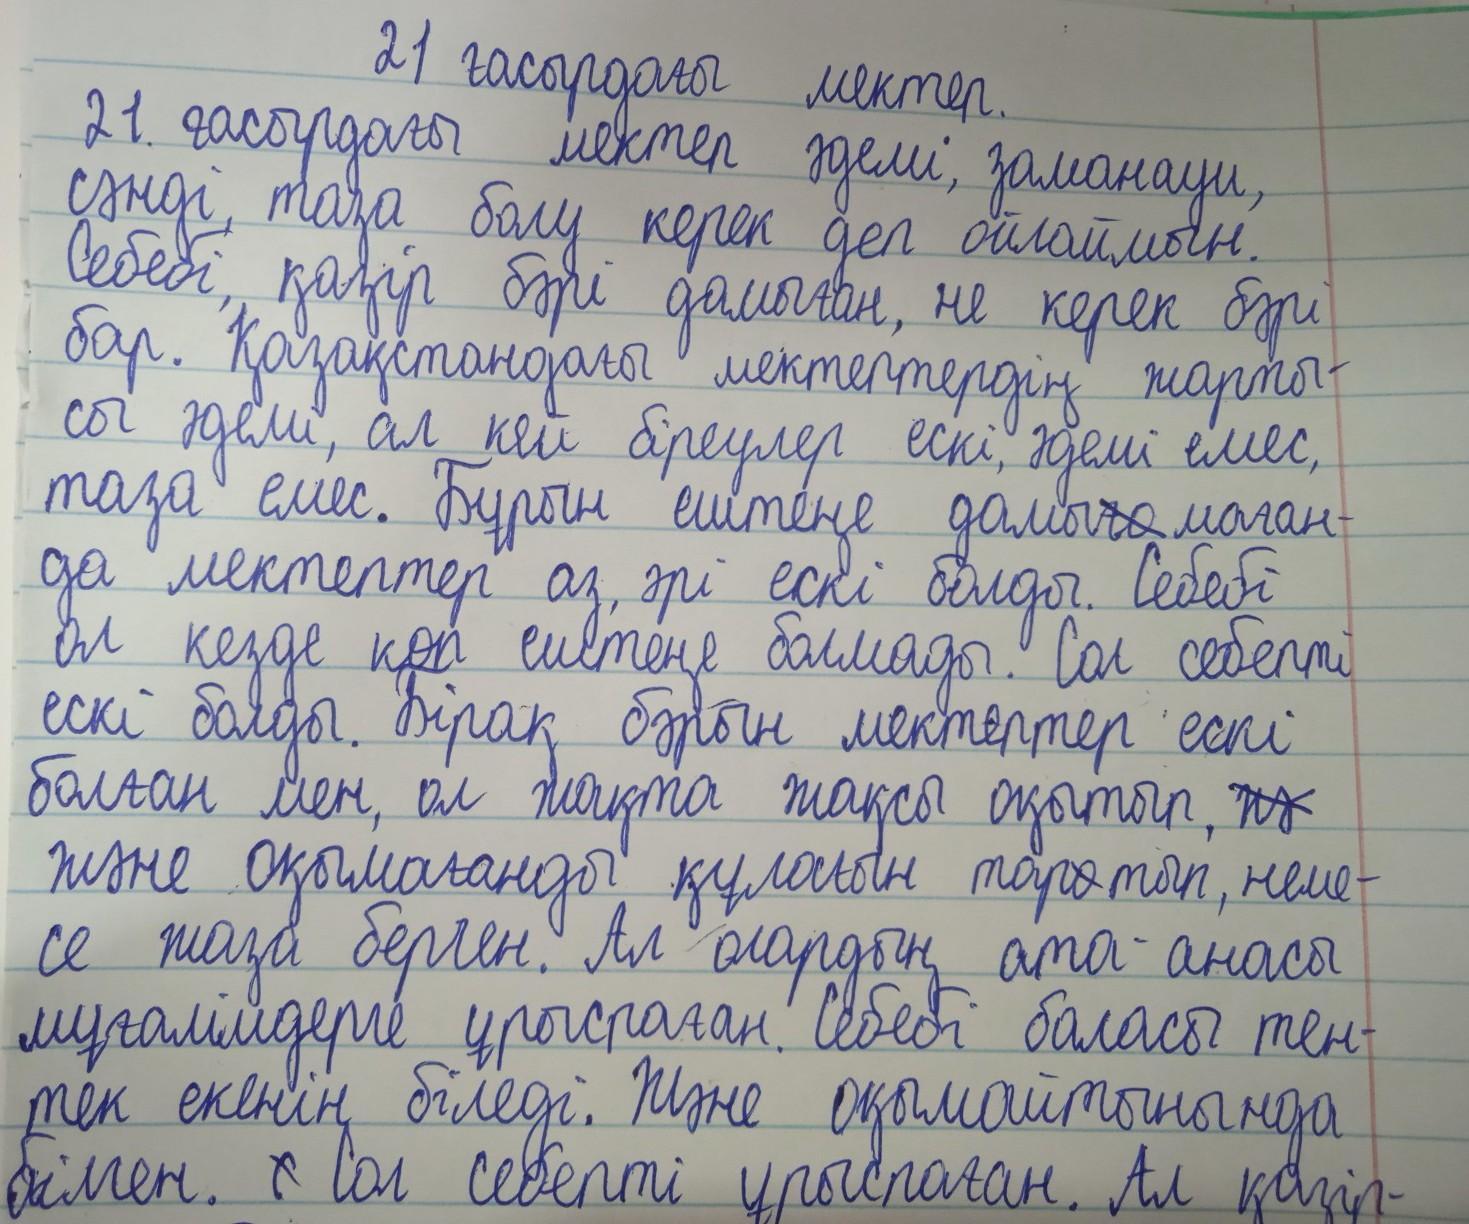 21 ғасырдағы мектеп.
21. ғасырдағы мектеп әдемі, заманауи,
сәнді, таза болу керек деп ойлаймын.
Себебі, қазір бәрі дамыған, не керек бәрі
бар. Қазақстандағы мектептердің жарты-
сы әдемі, ал кей біреулер ескі, әдемі емес,
таза емес. Бұрын ештеңе дамымаған-
да мектептер аз, әрі ескі болды. Себебі
ол кезде көп ештеңе болмады. Сол себепті
ескі болды. Бірақ бәрын мектептер ескі
болған мен, ол жақта жақсы оқытып,
және оқымағанды құлағын таратып, неме-
се жаза берген. Ал олардың ата-анасы
мұғалімдерге ұрыспаған. Себебі баласы тен-
тек екенін біледі. Және оқымайтынында
білген. Сол себепті ұрыспаған. Ал қазір-